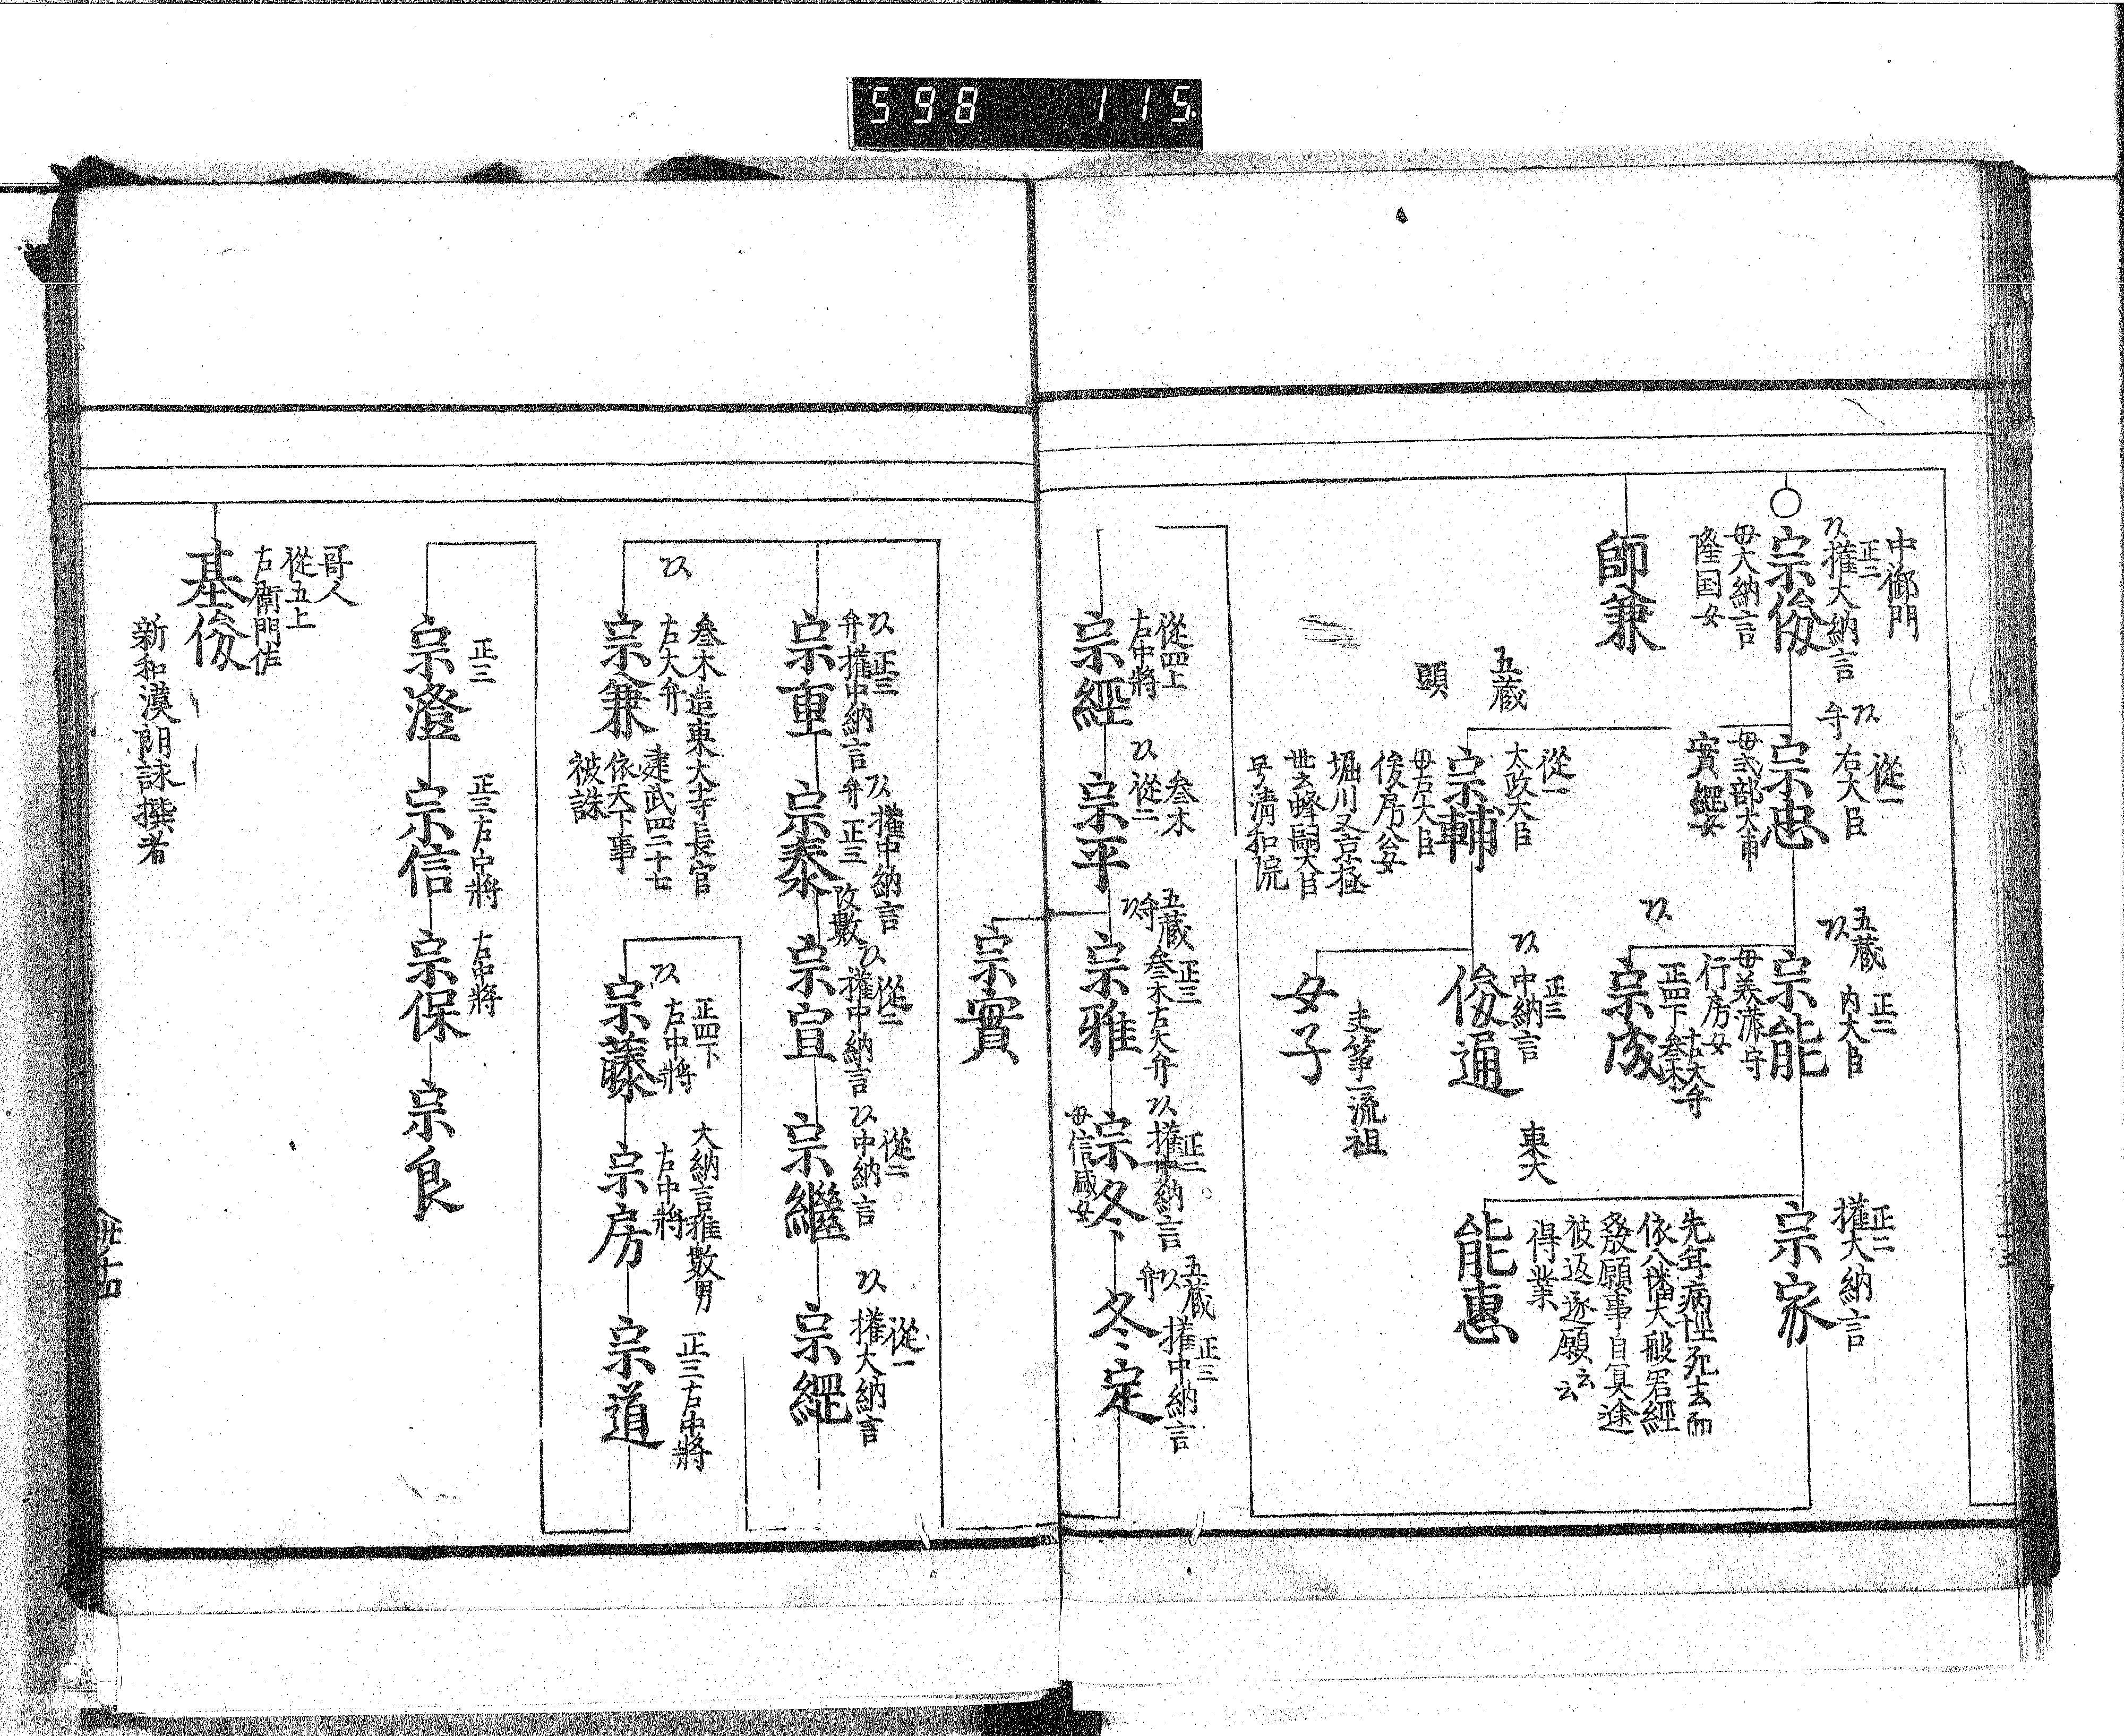 598 115
中御門
正二
權大納言
宗俊
母大納言
隆国女
師兼
從一
右大臣
宗忠
母式部大甫
實經女
五蔵
顕
從一
太政大臣
宗輔
母右大臣
俊房公女
堀川又京極
世云蜂飼大臣
号清和院
五蔵
正二
内大臣
宗能
母美濃守
行房女
右大弁
正四下参木
宗成
正三
中納言
俊通
女子
夫箏一流祖
正二
權大納言
宗家
東大
能惠
先年病惱死去而
依八幡大般若經
發願事自冥途
被返遂願云云
得業
從四上
右中將
宗經
参木
從二
宗平
五蔵
正三
参木右大弁
宗雅
正二
權中納言
宗冬
母信盛女
五蔵
正三
權中納言
冬定
宗實
正三
弁權中納言
宗重
權中納言
弁正三
宗泰
改數
從二
權中納言
宗宣
從二
中納言
宗繼
從一
權大納言
宗經
参木造東大寺長官
右大弁
宗兼
建武四二十七
依天下事
被誅
正四下
右中將
宗藤
大納言雅數男
右中將
宗房
正三右中將
宗道
正三
宗澄
正三右中將
宗信
右中將
宗保
宗良
哥人
從五上
右衛門佐
基俊
新和漢朗詠撰者